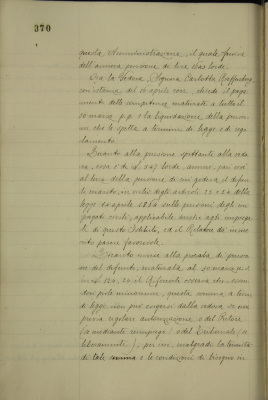 370
questa Amministrazione, il quale fruiva
dell'annua pensione di lire 1641 lorde.
Ora la Vedova, Signora Carlotta
con istanza del 16 aprile chiede il paga
mento delle competenze maturate a tutto il
10 marzo p.p. e la liquidazione della pensio
ne che le spetta a termini di legge e di rego
lamento.
Quanto alla pensione spettante alla vedo
va, essa è di L. 547 lorde annue, pari a
della pensione di cui godeva il defun
to marito, in virtù degli articoli e della
legge 14 aprile 1864 sulle pensioni degli im
piegati civili, applicabile anche agli impiega
ti di questo Istituto, ed il Relatore dà in me
rito parere favorevole.
Quanto invece alla parata di pensio
ne del defunto, maturata al 10 marzo p.p.
in L. il Riferente osserva che, essen
dovi prole minorenne, questa somma a termini
di legge, non può esigersi dalla vedova se non
previa regolare autorizzazione, o del Pretore
(o mediante reimpiego) o del Tribunale (a
libera mente); per cui, malgrado la tenuità
di tale somma e le condizioni di bisogno in